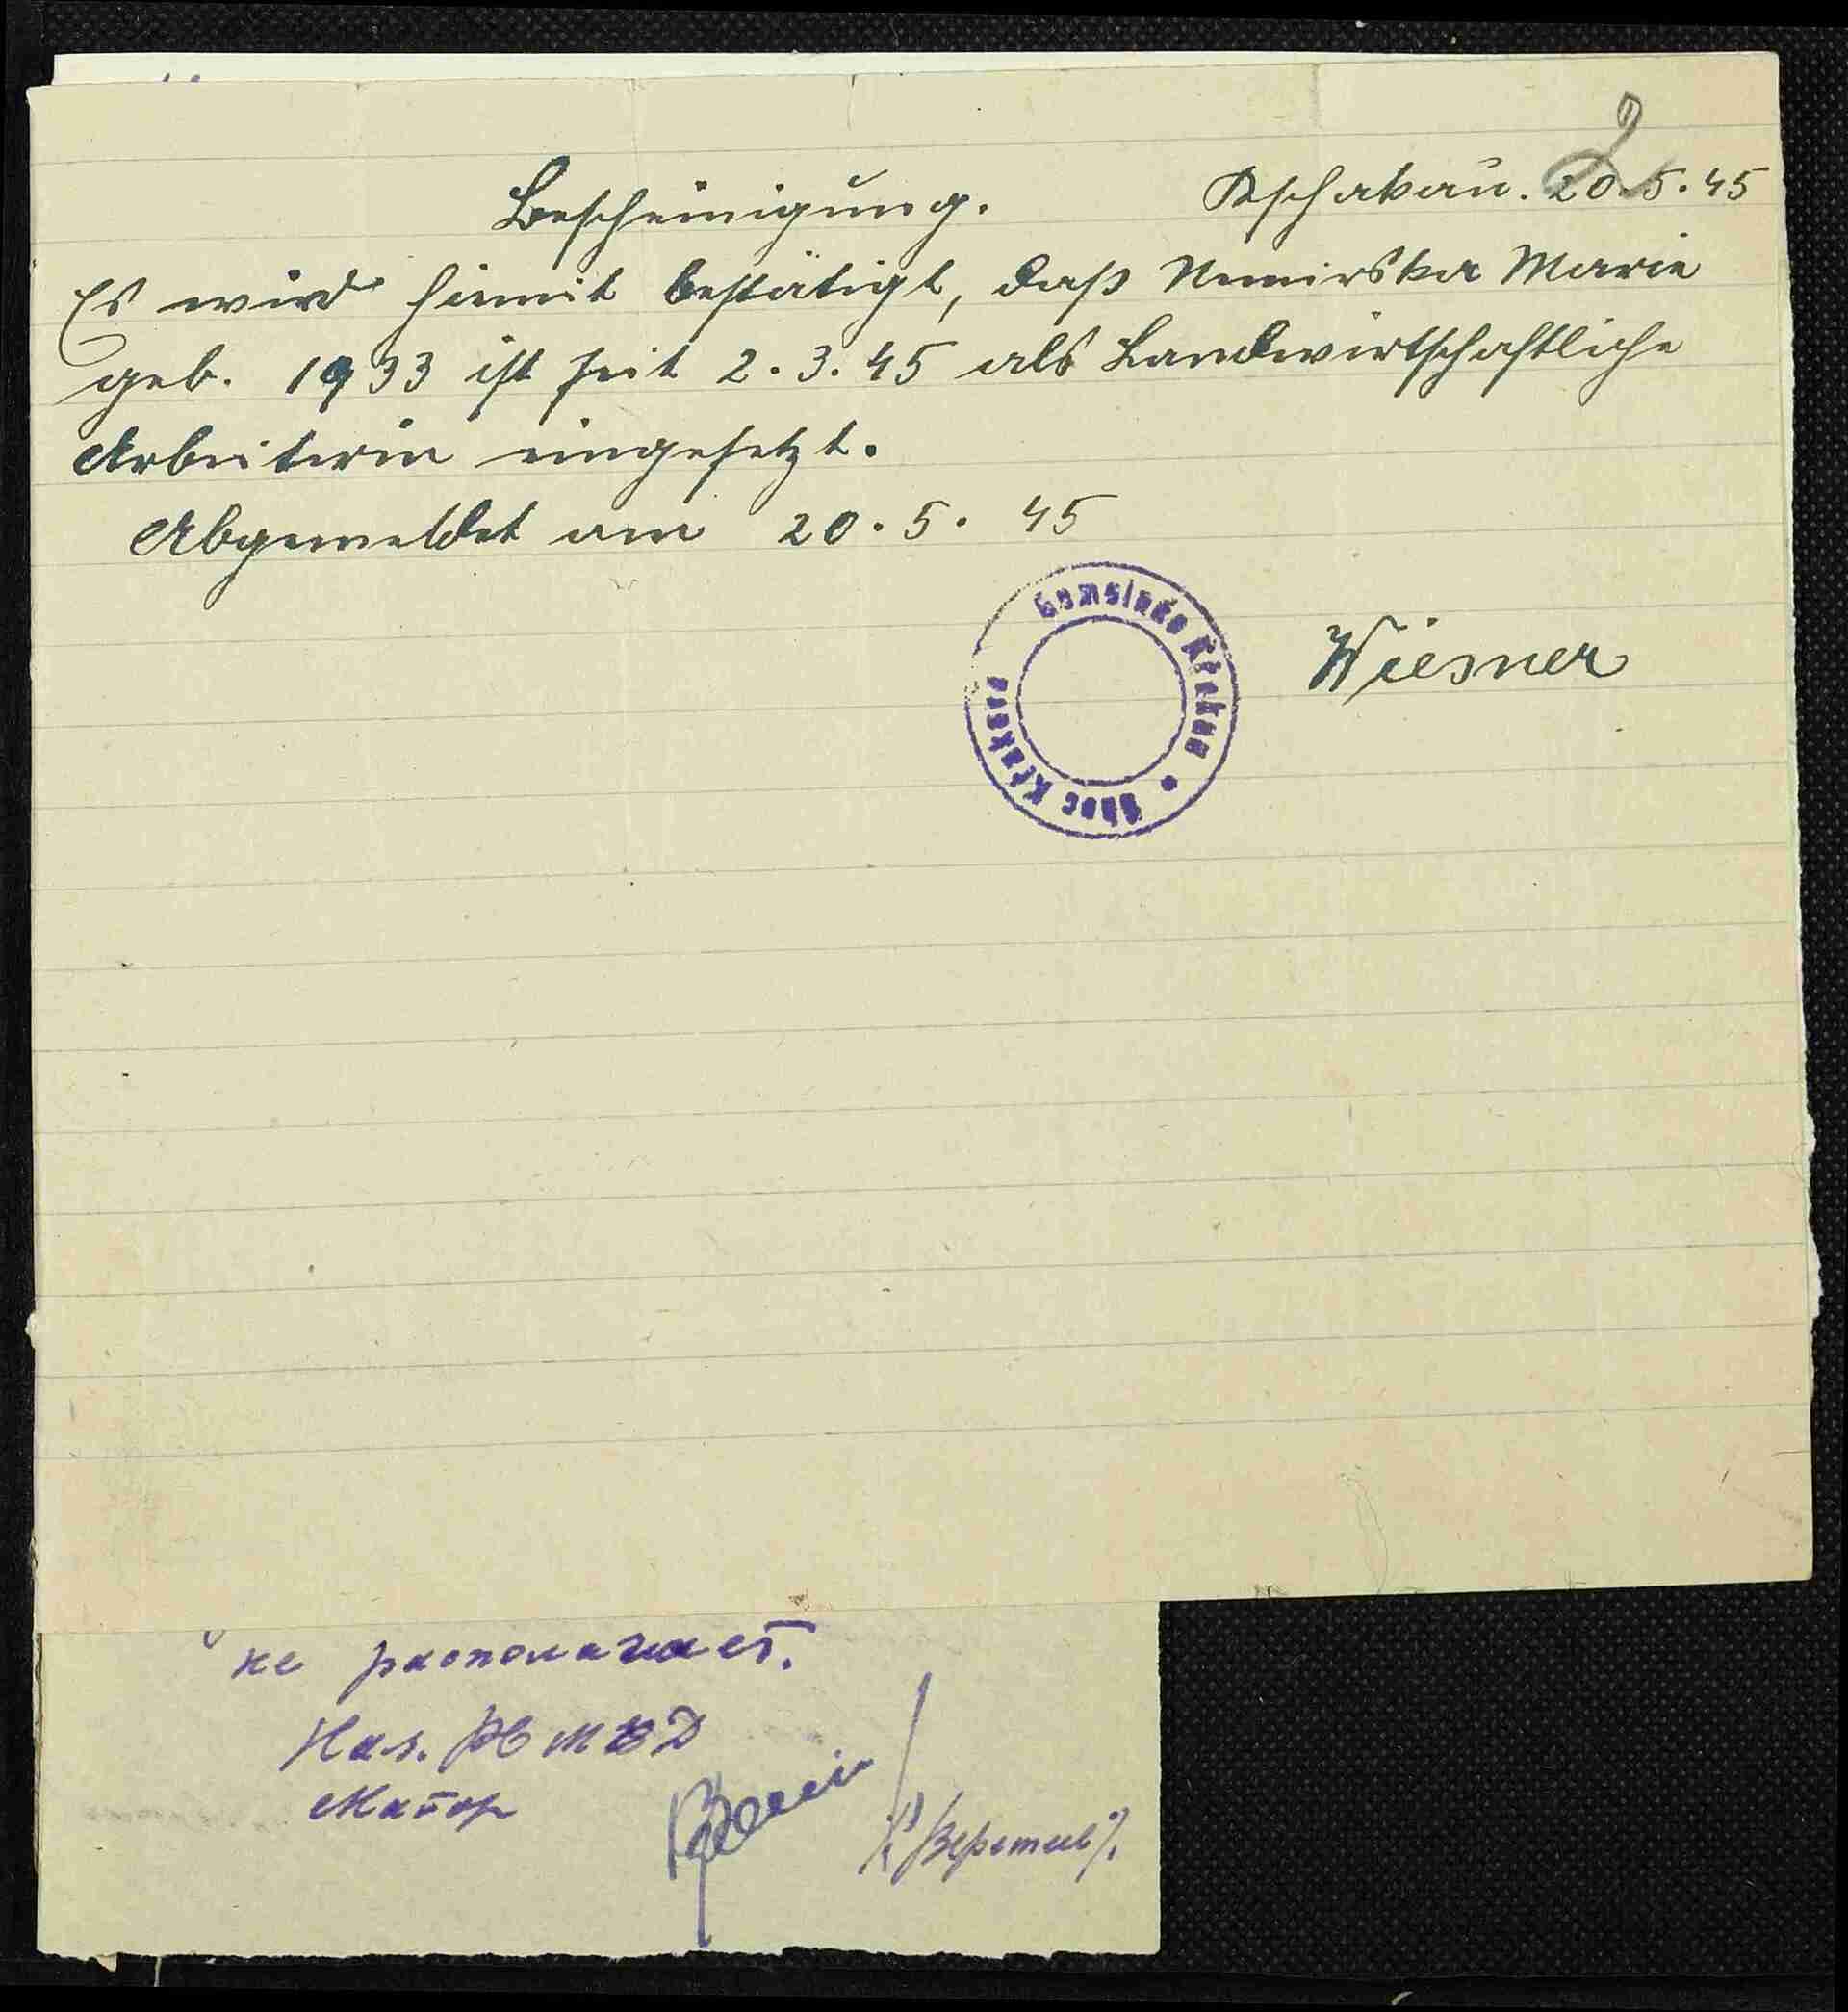 2
Bescheinigung. Rschakau. 20.5.45
Es wird hiemit bestätigt, daß Nemirska Marie
geb. 1933 ist seit 2.3.45 als Landwirtschaftliche
Arbeiterin eingesetzt.
Abgemeldet am 20.5.45
Gemeinde Křakau • Obec Křakov
Wiesner
не располагает.
Нач. РО МВД
Майор